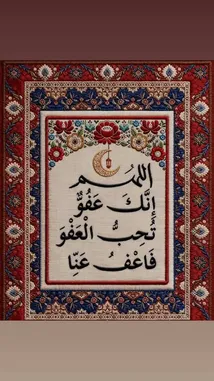 اللهم
إِنَّكَ عَفُوٌّ
تُحِبُّ الْعَفْوَ
فَاعْفُ عَنَّا